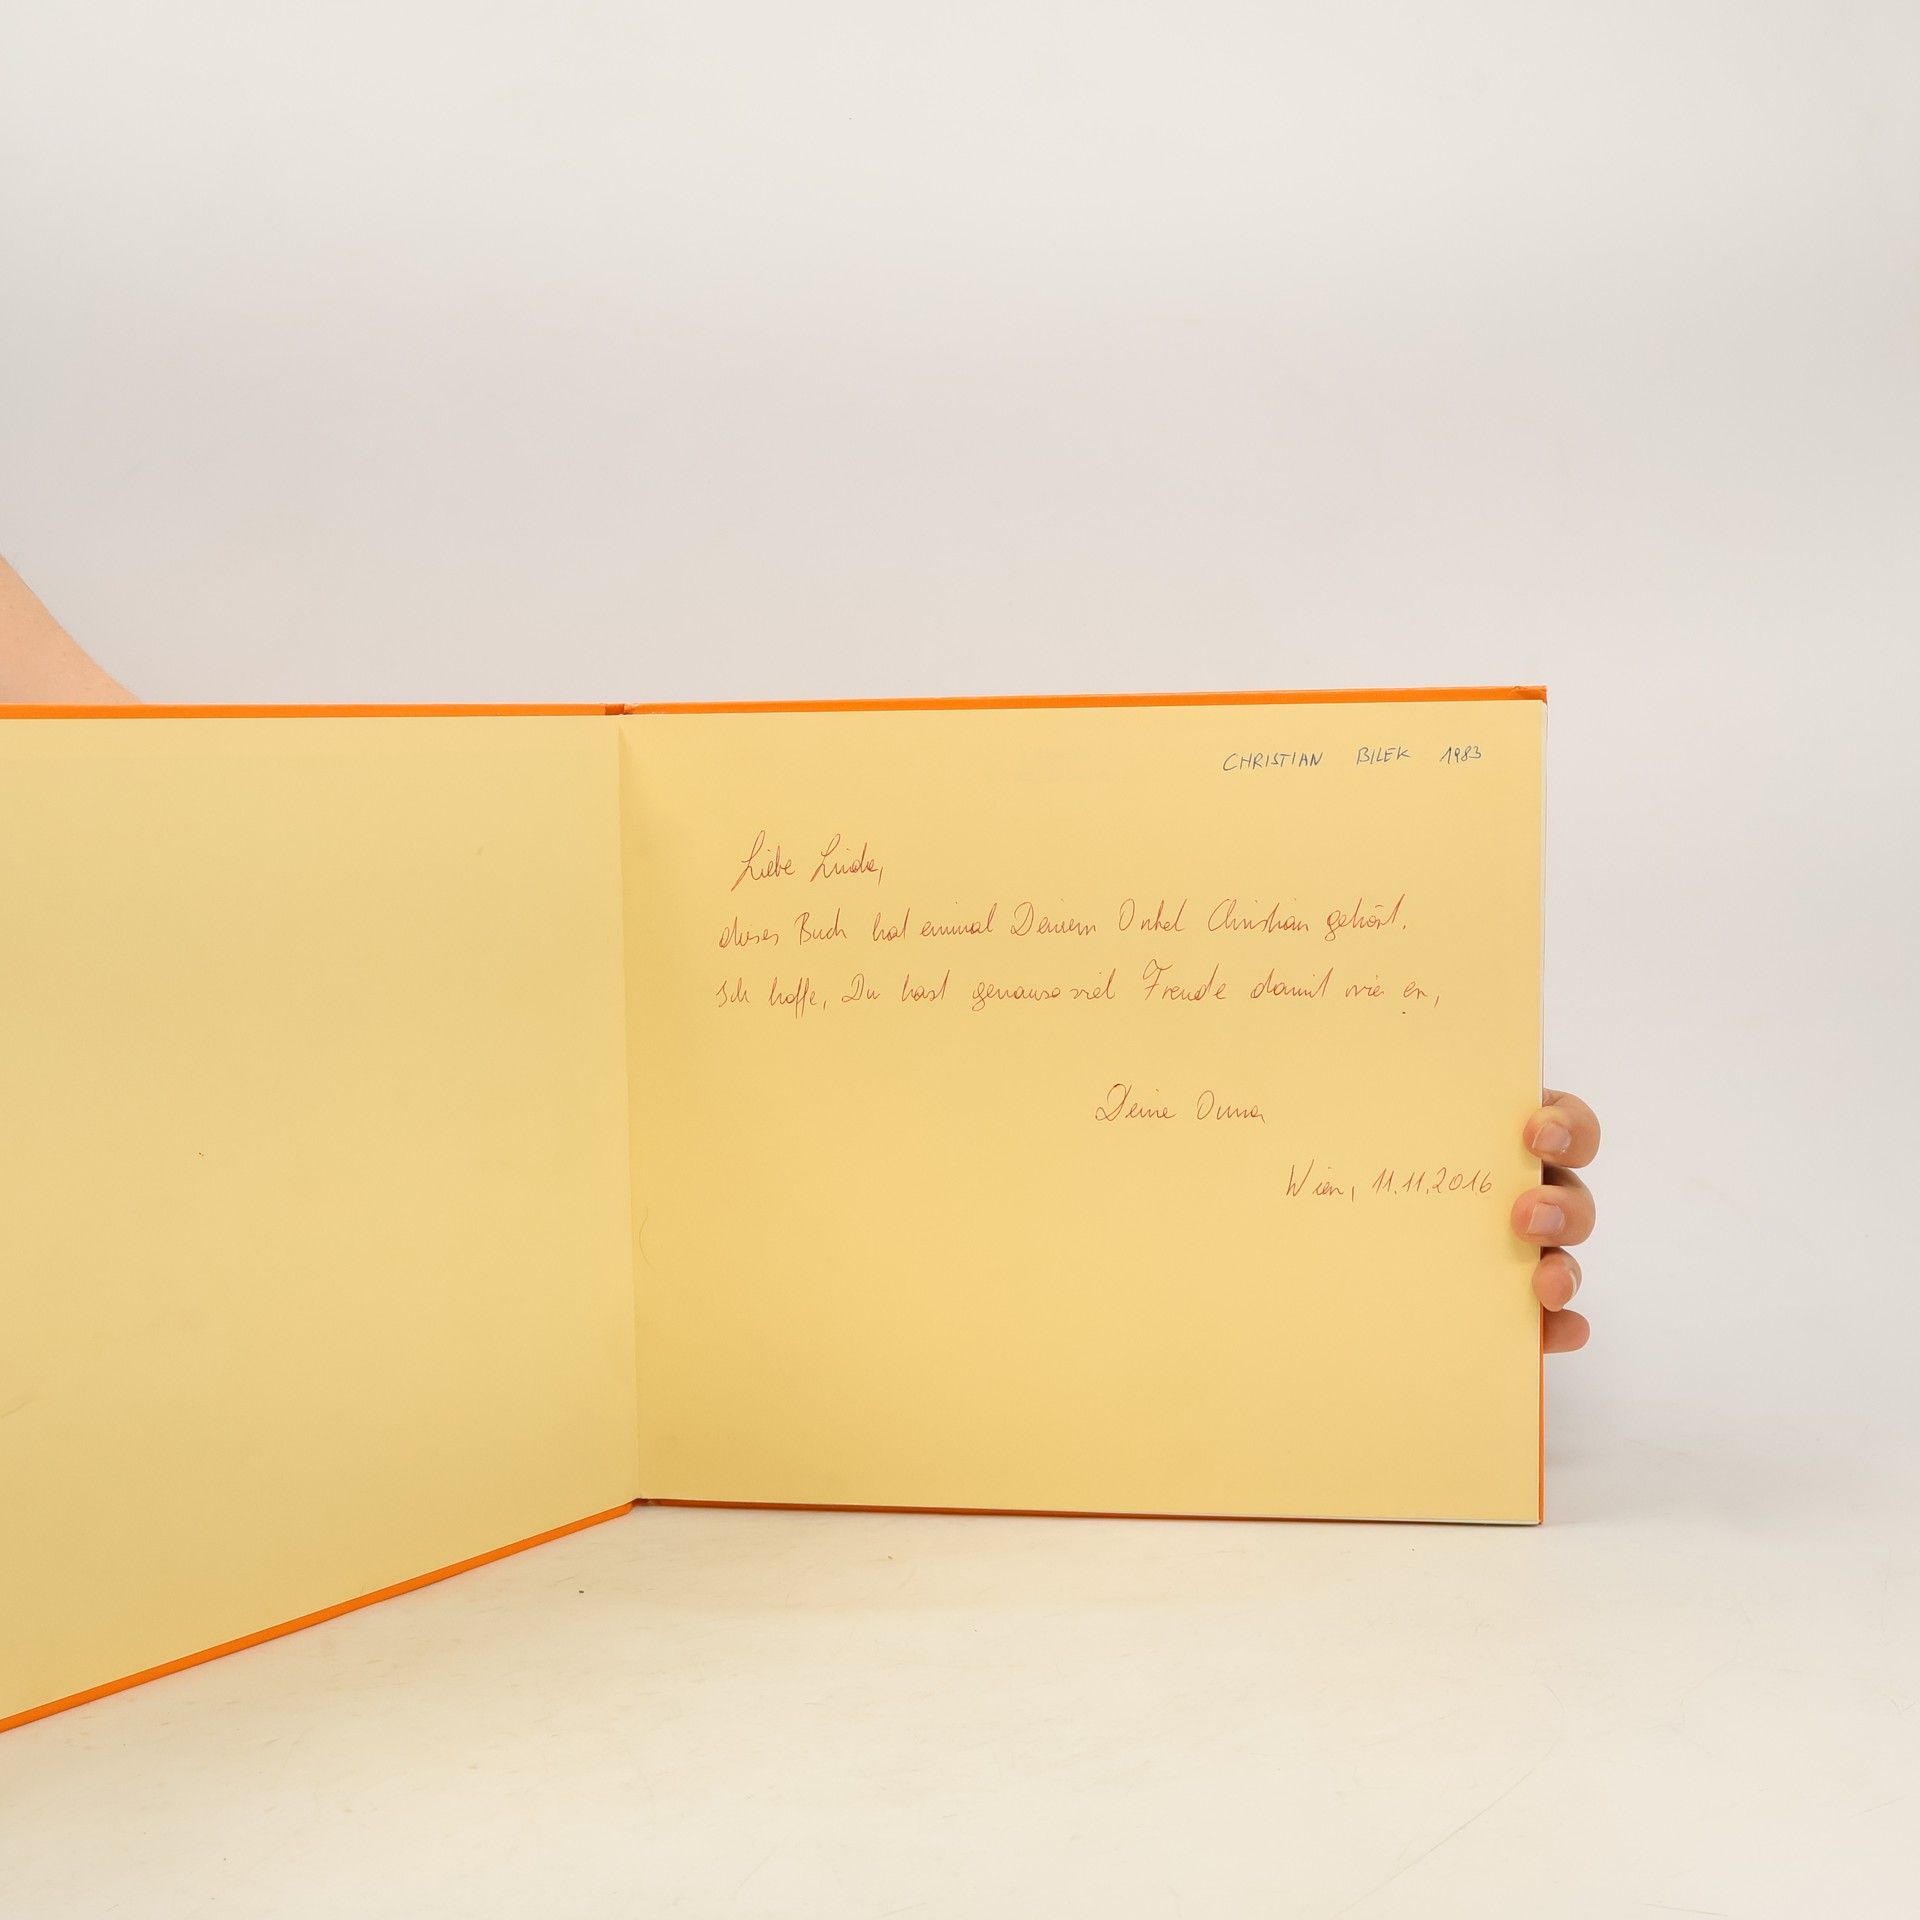 CHRISTIAN BILEK 1983
Liebe Linda,
dieses Buch hat einmal Deinem Onkel Christian gehört.
Ich hoffe, Du hast genauso viel Freude damit wie er,
Deine Omma
Wien, 11.11.2016